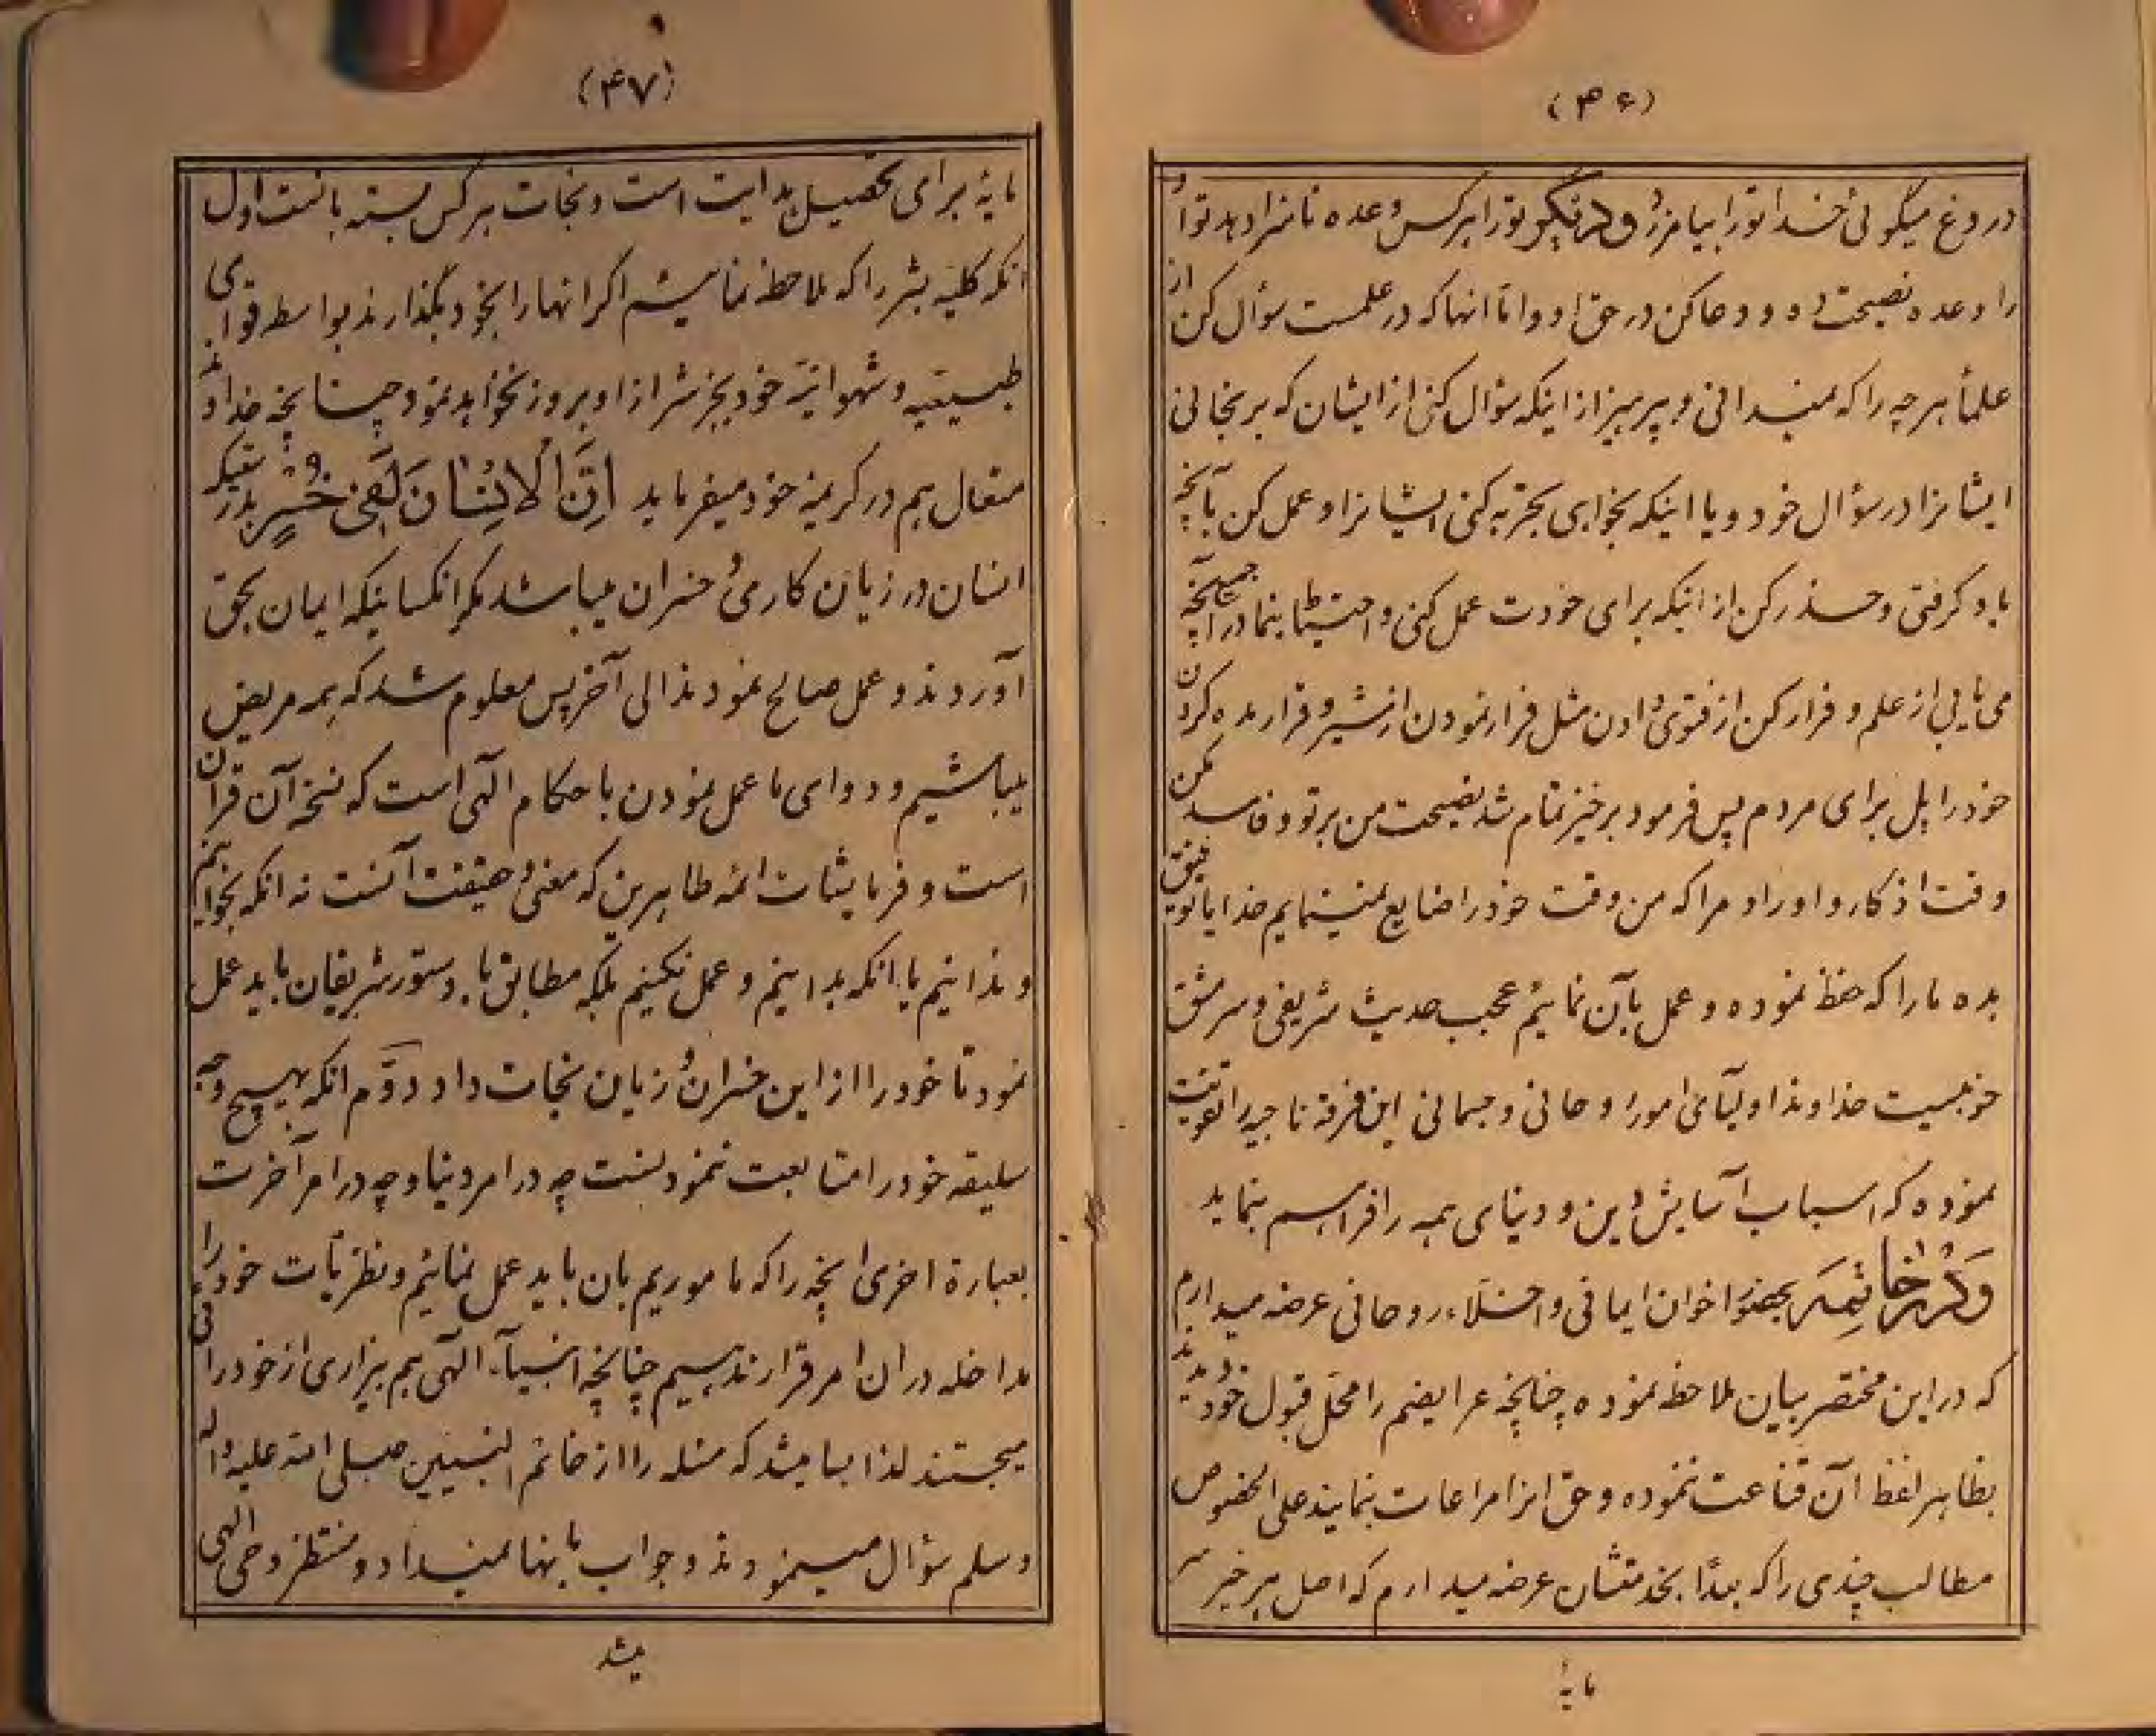 (۴۶)
دروغ میگوئی خدا تو را بیامرزد و دیگر تو را هر کس وعده ناسزا دهد تو او
را وعده نصیحت ده و دعا کن در حق او و اما انها که در علمست سؤال کن از
علما هر چه را که نمیدانی و پرهیز از اینکه سؤال کنی از ایشان که برنجانی
ایشانرا در سؤال خود و یا اینکه بخواهی تجربه کنی ایشانرا و عمل کن بآنچه
یاد گرفتی و حذر کن از انیکه برای خودت عمل کنی و احتیاط بنما در جمیع آنچه
می یابی از علم و فرار کن از فتوی دادن مثل فرار نمودن از شیر و قرار مده گردن
خود را پل برای مردم پس فرمود برخیز تمام شد نصیحت من بر تو و فاسد مکن
وقت اذکار و اوراد مرا که من وقت خود را ضایع نمینمایم خدایا توفیق
بده ما را که حفظ نموده و عمل بآن نمائیم عجب حدیث شریفی و سرمشق
خوبیست خداوندا اولیآی امور روحانی و جسمانی این فرقه ناجیه را تقویت
نموده که اسباب آسایش دین و دنیای همه را فراهم بنماید
و در خاتمه بحضور اخوان ایمانی و اخلاء روحانی عرضه میدارم
که در این مختصر بیان ملاحظه نموده چنانچه عرایضم را محل قبول خود دیدید
بظاهر لفظ آن قناعت ننموده و حق انرا مراعات بنمایند علی الخصوص
مطالب چندی را که بعدًا بخدمتشان عرضه میدارم که اصل هر خیر
مایهٔ
(۴۷)
مایهٔ برای تحصیل هدایت است و نجات هر کس بسته بانست اول
انکه کلیه بشر را که ملاحظه نمائیم اگر انها را بخود بگذارند بواسطه قوای
طبیعیه و شهوانیّه خود بجز شر از او بروز نخواهد نمود چنانچه خداوند
متعال هم در کریمهٔ خود میفرماید اِنَّ الاِنسَانَ لَفِی خُسْرٍ بدرستیکه
انسان در زیان کاری و خسران میباشد مگر انکسانیکه ایمان بحق
آوردند و عمل صالح نمودند الی آخر پس معلوم شد که همه مریض
میباشیم و دوای ما عمل نمودن باحکام الهی است که نسخه آن قرآن
است و فرمایشات ائمه طاهرین که معنی و حقیقت آنست نه انکه بخوانیم
و ندانیم یا انکه بدانیم و عمل نکنیم بلکه مطابق با دستور شریفان باید عمل
نمود تا خود را از این خسران و زیان نجات داد دوّم انکه بهیچ وجه
سلیقه خود را متابعت ننمود بست چه در امر دنیا و چه در امر آخرت
بعبارة اخری انچه را که ماموریم بان باید عمل نمائیم و نظریّات خود را
مداخله در ان امر قرار ندهیم چنانچه انبیآء الهی هم بیزاری از خودرائی
میجستند لذا بسا میشد که مسئله را از خاتم النبیین صلی الله علیه و آله
و سلم سؤال مینمودند و جواب بانها نمیداد و منتظر وحی الهی
میشد